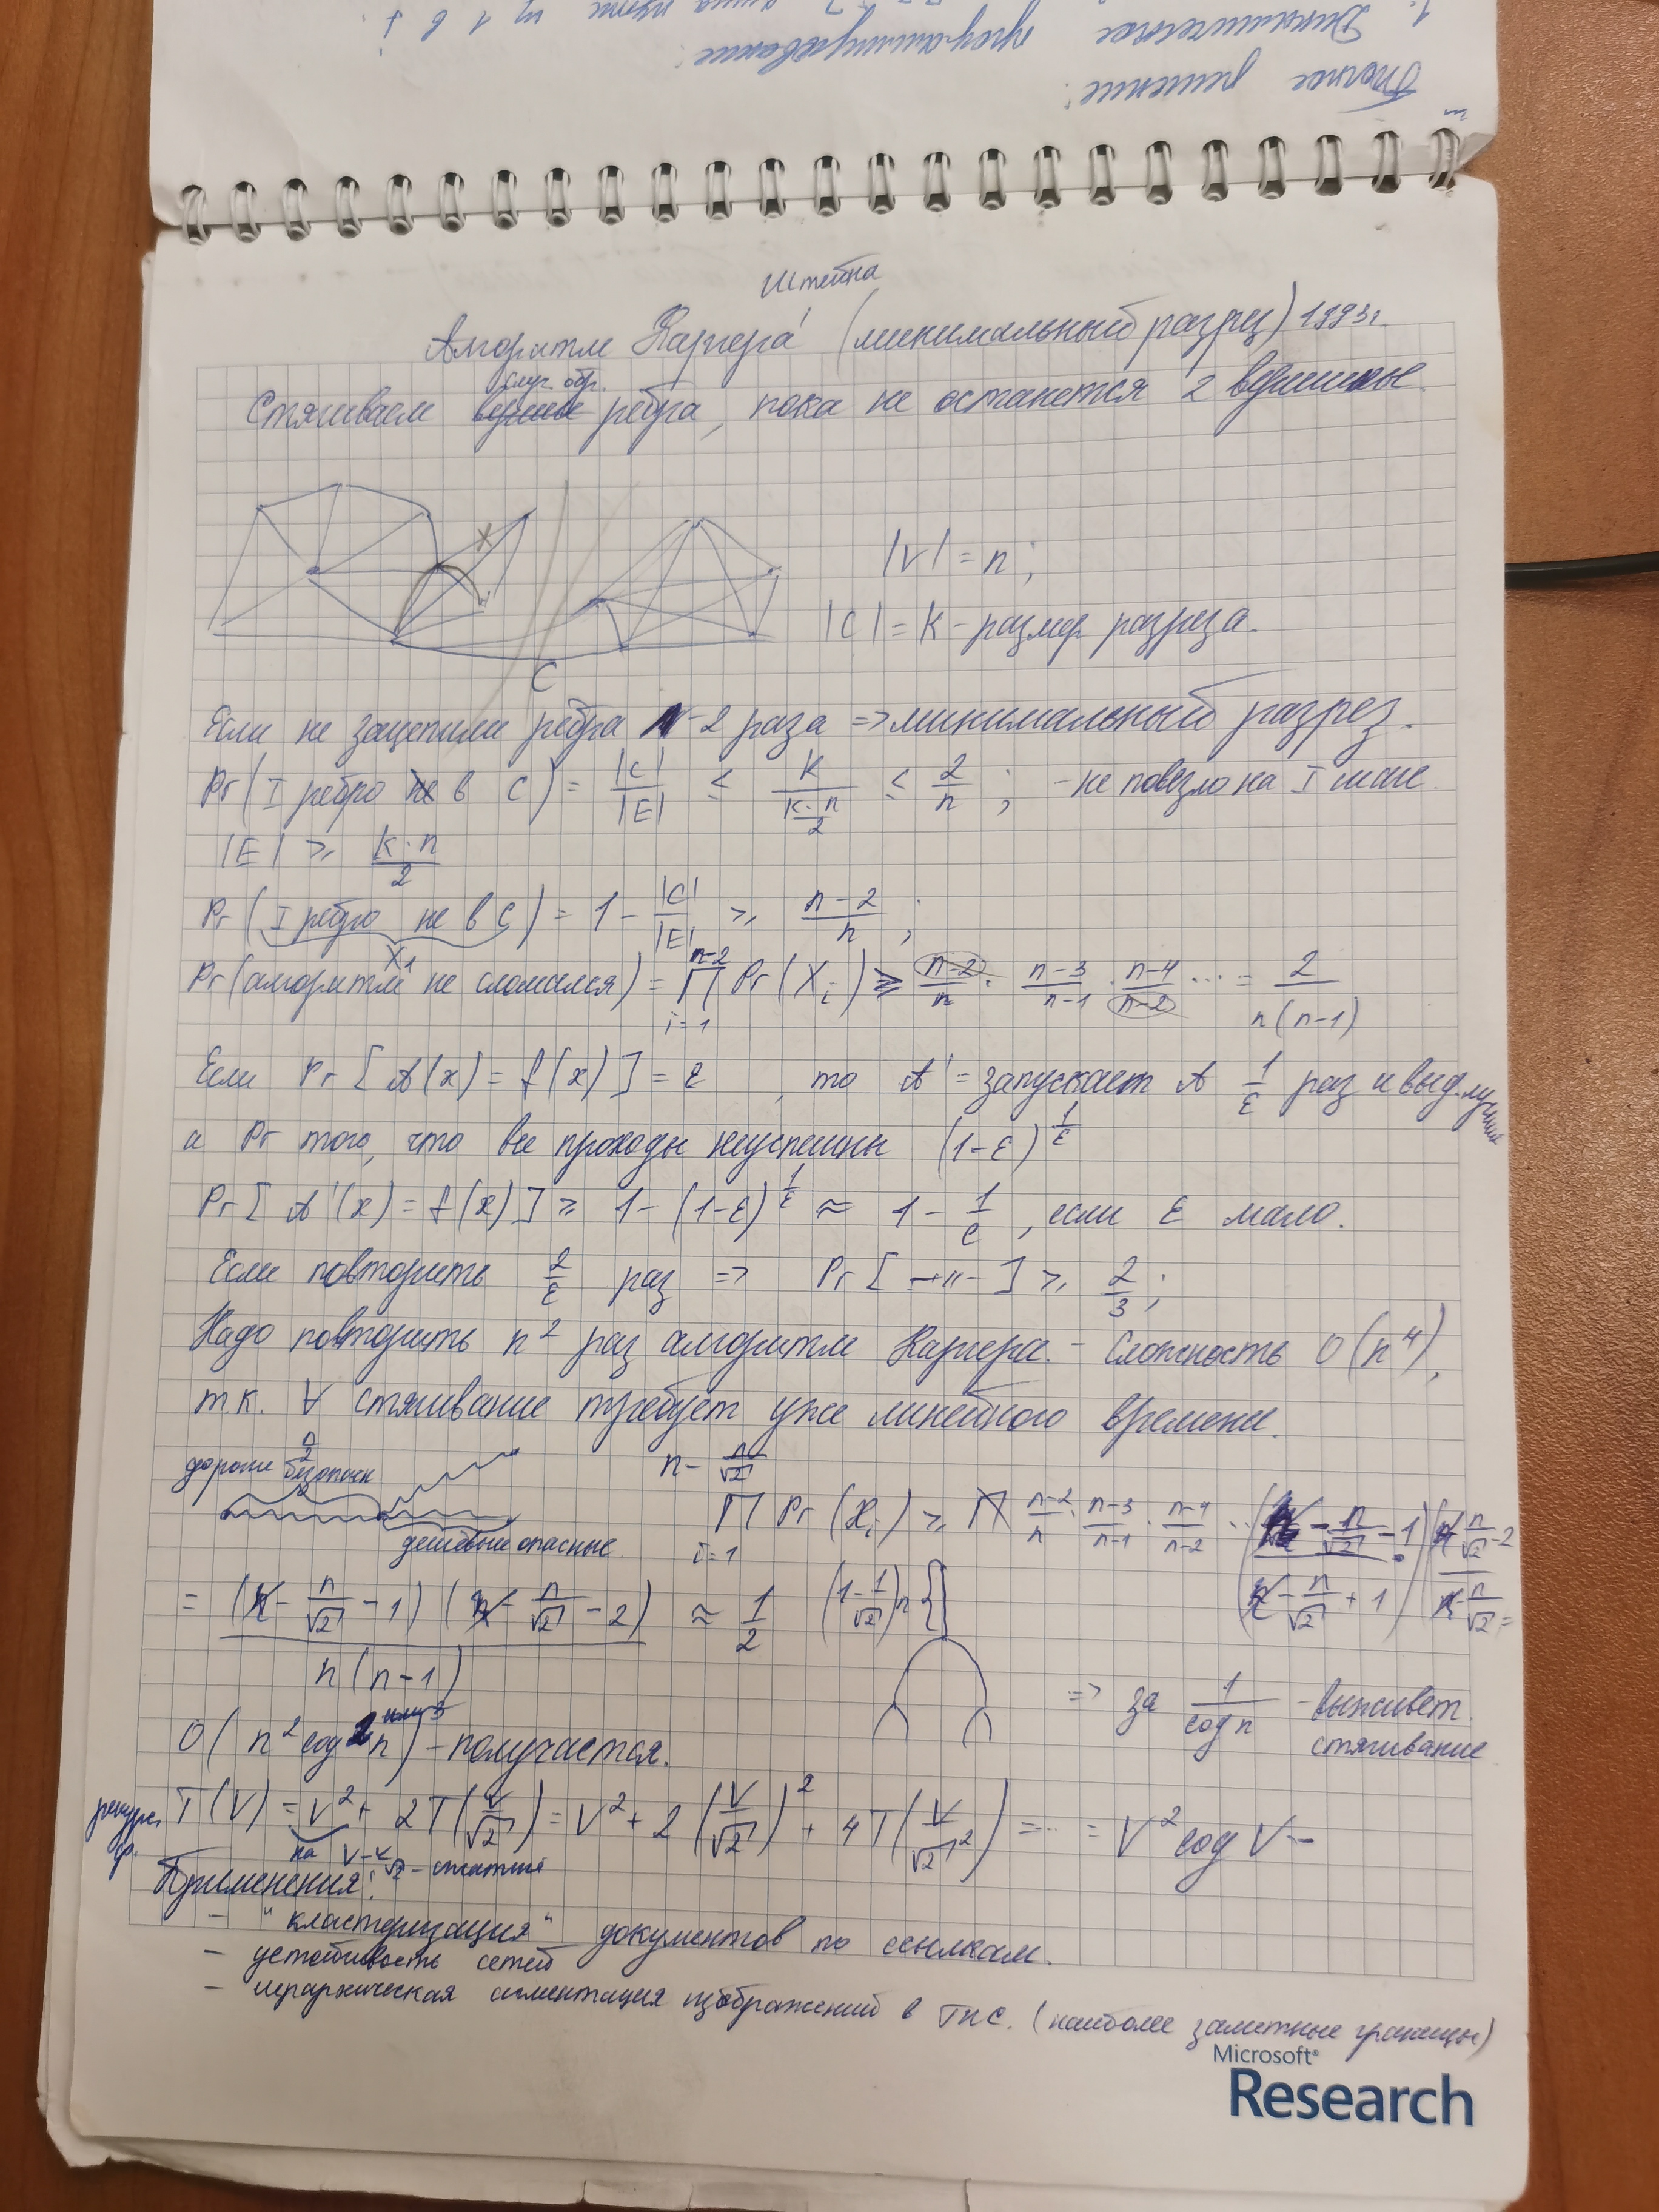 1. Динамическое программирование:
Точное решение:
Штейна
Алгоритм Каргера (минимальный разрез) 1993г.
случ. обр.
Стягиваем ребра, пока не останется 2 вершины
|V| = n;
|C| = K - размер разреза.
C
Если не зацепили ребра n-2 раза => минимальный разрез.
Pr(I ребро в C) = |C|/|E| ≤ K/(K·n/2) ≤ 2/n; - не повезло на I шаге.
|E| ≥ K·n/2
Pr(I ребро не в C) = 1 - |C|/|E| ≥ (n-2)/n;
X₁
Pr(алгоритм не сломался) = ∏_{i=1}^{n-2} Pr(X_i) ≥ (n-2)/n · (n-3)/(n-1) · (n-4)/(n-2) ... = 2/(n(n-1))
Если Pr[A(x) = f(x)] = ε, то A' = запускает A 1/ε раз и выд. лучший
и Pr того, что все проходы неуспешны (1-ε)^{1/ε}
Pr[A'(x) = f(x)] ≥ 1-(1-ε)^{1/ε} ≈ 1 - 1/e, если ε мало.
Если повторить 2/ε раз => Pr[-"-] ≥ 2/3;
Надо повторить n² раз алгоритм Каргера. - Сложность O(n⁴),
т.к. ∀ стягивание требует уже линейного времени.
дорогие безопасн
дешёвые опасные
∏_{i=1}^{n-n/√2} Pr(X_i) ≥ (n-2)/n · (n-3)/(n-1) · (n-4)/(n-2) ·...
= (n/√2 - 1)(n/√2 - 2)/(n(n-1)) ≈ 1/2
(1-1/√2)n {
=> за 1/log n - выживет.
стягивание
O(n² log² n) - получается.
рекурс. ф.
T(V) = V² + 2T(V/√2) = V² + 2(V/√2)² + 4T(V/√2²) = ... = V² log V -
на V-V/√2 - сжатия
Применения:
- "кластеризация" документов по ссылкам.
- устойчивость сетей
- иерархическая сегментация изображений в ТПС. (наиболее заметные границы)
Microsoft®
Research